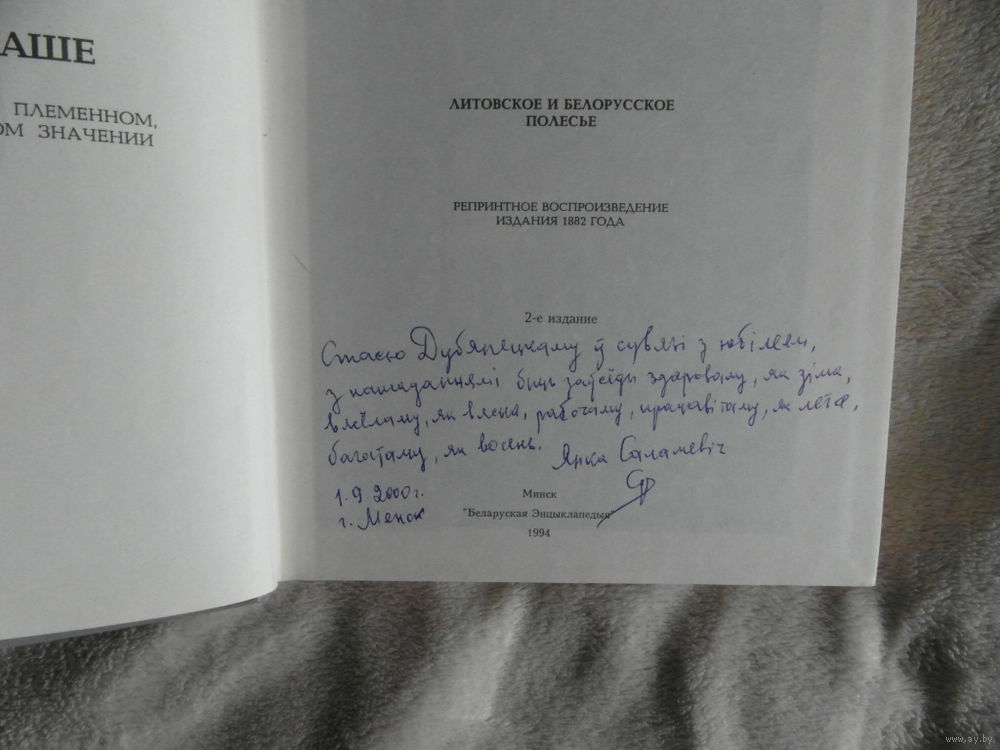 АШЕ
ПЛЕМЕННОМ,
ОМ ЗНАЧЕНИИ
ЛИТОВСКОЕ И БЕЛОРУССКОЕ
ПОЛЕСЬЕ
РЕПРИНТНОЕ ВОСПРОИЗВЕДЕНИЕ
ИЗДАНИЯ 1882 ГОДА
2-е издание
Стасю Дубянецкаму ў сувязі з юбілеем,
з пажаданнямі быць заўсёды здароваму, як зіма,
вясёламу, як вясна, рабочаму, працавітаму, як лета,
багатаму, як восень.
Янка Саламевіч
1.9.2000 г.
г. Менск
Минск
"Беларуская Энцыклапедыя"
1994
www.ay.by